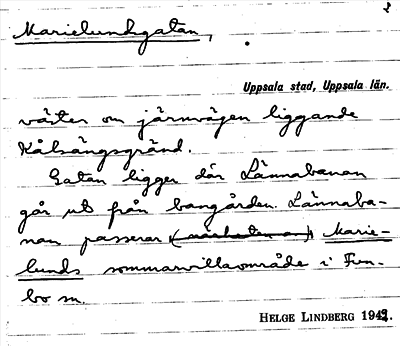 Marielundsgatan,
Uppsala stad, Uppsala län.
väster om järnvägen liggande
Kålsängsgränd.
Gatan ligger där Lännabanan
går ut från bangården. Lännaba-
nan passerar Marie-
lunds sommarvillaområde i Fun-
bo sn.
HELGE LINDBERG 1942.